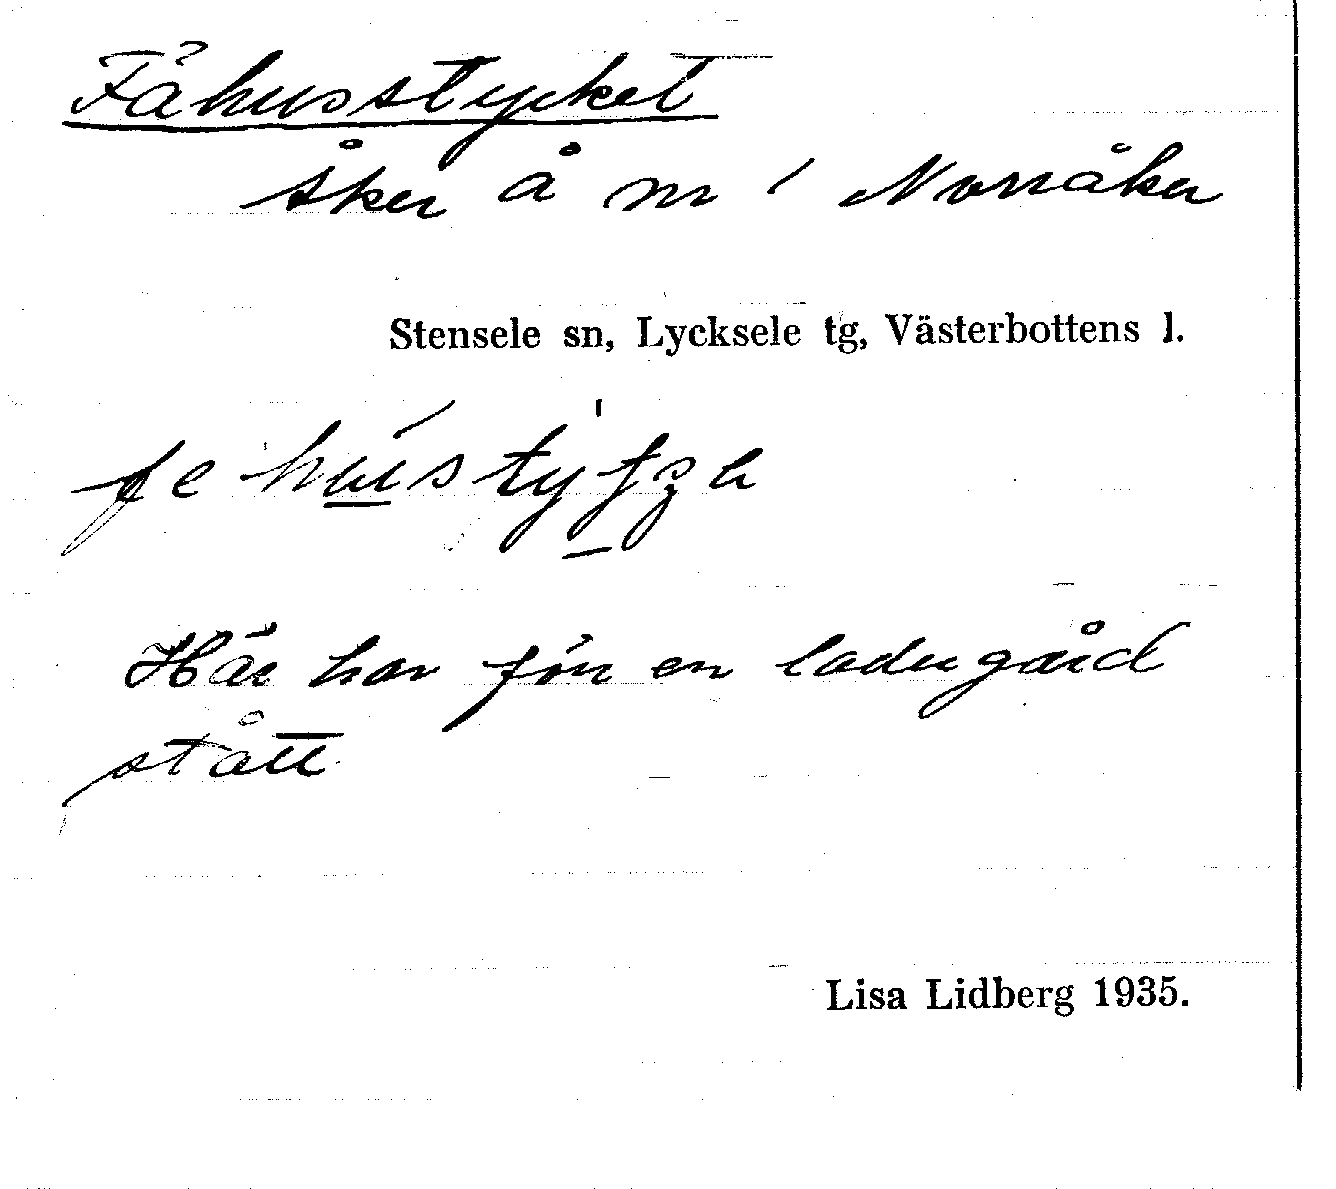 Fähusstycket
åker å nr 1 Norråker
Stensele sn, Lycksele tg, Västerbottens l.
Här har förr en ladugård
stått
Lisa Lidberg 1935.